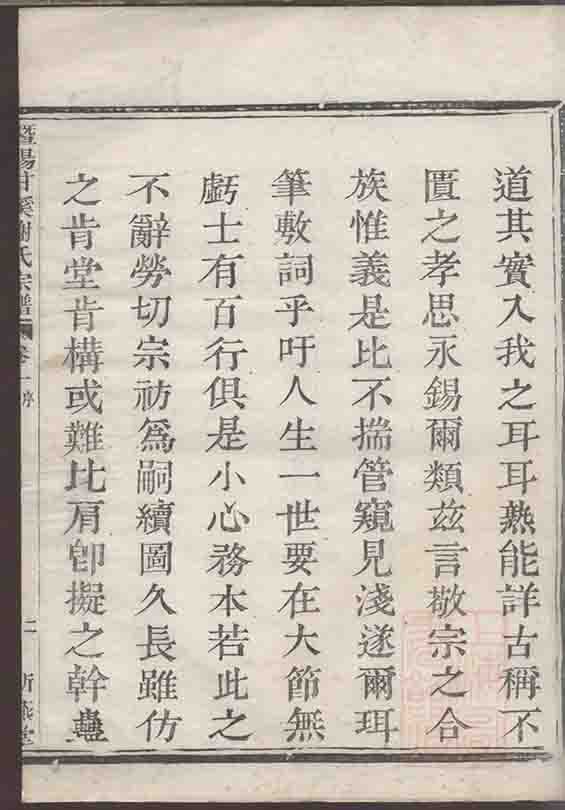 道其實入我之耳耳熟能詳古稱不
匱之孝思永錫爾類茲言敬宗之合
族惟義是比不揣管窺見淺遂爾珥
筆敷詞乎吁人生一世要在大節無
虧士有百行俱是小心務本若此之
不辭勞切宗祊為嗣續圖久長雖仿
之肯堂肯構或難比肩卽擬之幹蠱
暨陽甘溪謝氏宗譜 卷一 序 二